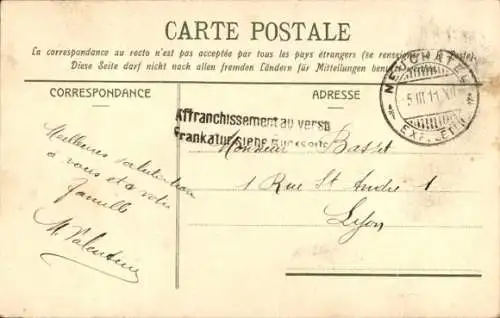 CARTE POSTALE
La correspondance au recto n'est pas acceptée par tous les pays étrangers (se renseigner
Diese Seite darf nicht nach allen fremden Ländern für Mitteilungen
CORRESPONDANCE
ADRESSE
NEUCHATEL
5.III.11
EXP. LETTR.
Affranchissement au verso
Frankatur siehe Rückseite
Meilleures salutations
à vous et à votre
famille
M. Valentine
Monsieur Basset
1 Rue St André 1
Lyon